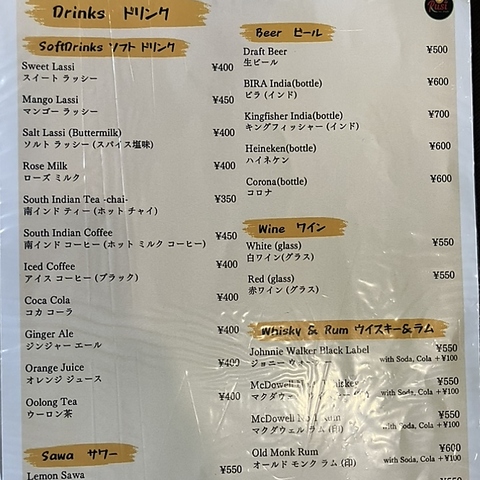 Drinks ドリンク
SoftDrinks ソフト ドリンク
Sweet Lassi ¥400
スイート ラッシー
Mango Lassi ¥450
マンゴー ラッシー
Salt Lassi (Buttermilk) ¥400
ソルト ラッシー (スパイス塩味)
Rose Milk ¥400
ローズ ミルク
South Indian Tea -chai- ¥350
南インド ティー (ホット チャイ)
South Indian Coffee ¥450
南インド コーヒー (ホット ミルク コーヒー)
Iced Coffee ¥400
アイス コーヒー (ブラック)
Coca Cola ¥400
コカ コーラ
Ginger Ale ¥400
ジンジャー エール
Orange Juice ¥400
オレンジ ジュース
Oolong Tea ¥400
ウーロン茶
Sawa サワー
Lemon Sawa ¥550
Rasi
Beer ビール
Draft Beer ¥500
生ビール
BIRA India(bottle) ¥600
ビラ (インド)
Kingfisher India(bottle) ¥700
キングフィッシャー (インド)
Heineken(bottle) ¥600
ハイネケン
Corona(bottle) ¥600
コロナ
Wine ワイン
White (glass) ¥550
白ワイン(グラス)
Red (glass) ¥550
赤ワイン (グラス)
Whisky & Rum ウイスキー&ラム
Johnnie Walker Black Label ¥550
ジョニー with Soda, Cola +¥100
McDowell ¥550
マクダウェル with Soda, Cola +¥100
McDowell No.1 Rum ¥550
マクダウェル ラム (印) with Soda, Cola +¥100
Old Monk Rum ¥600
オールド モンク ラム (印) with Soda, Cola +¥100